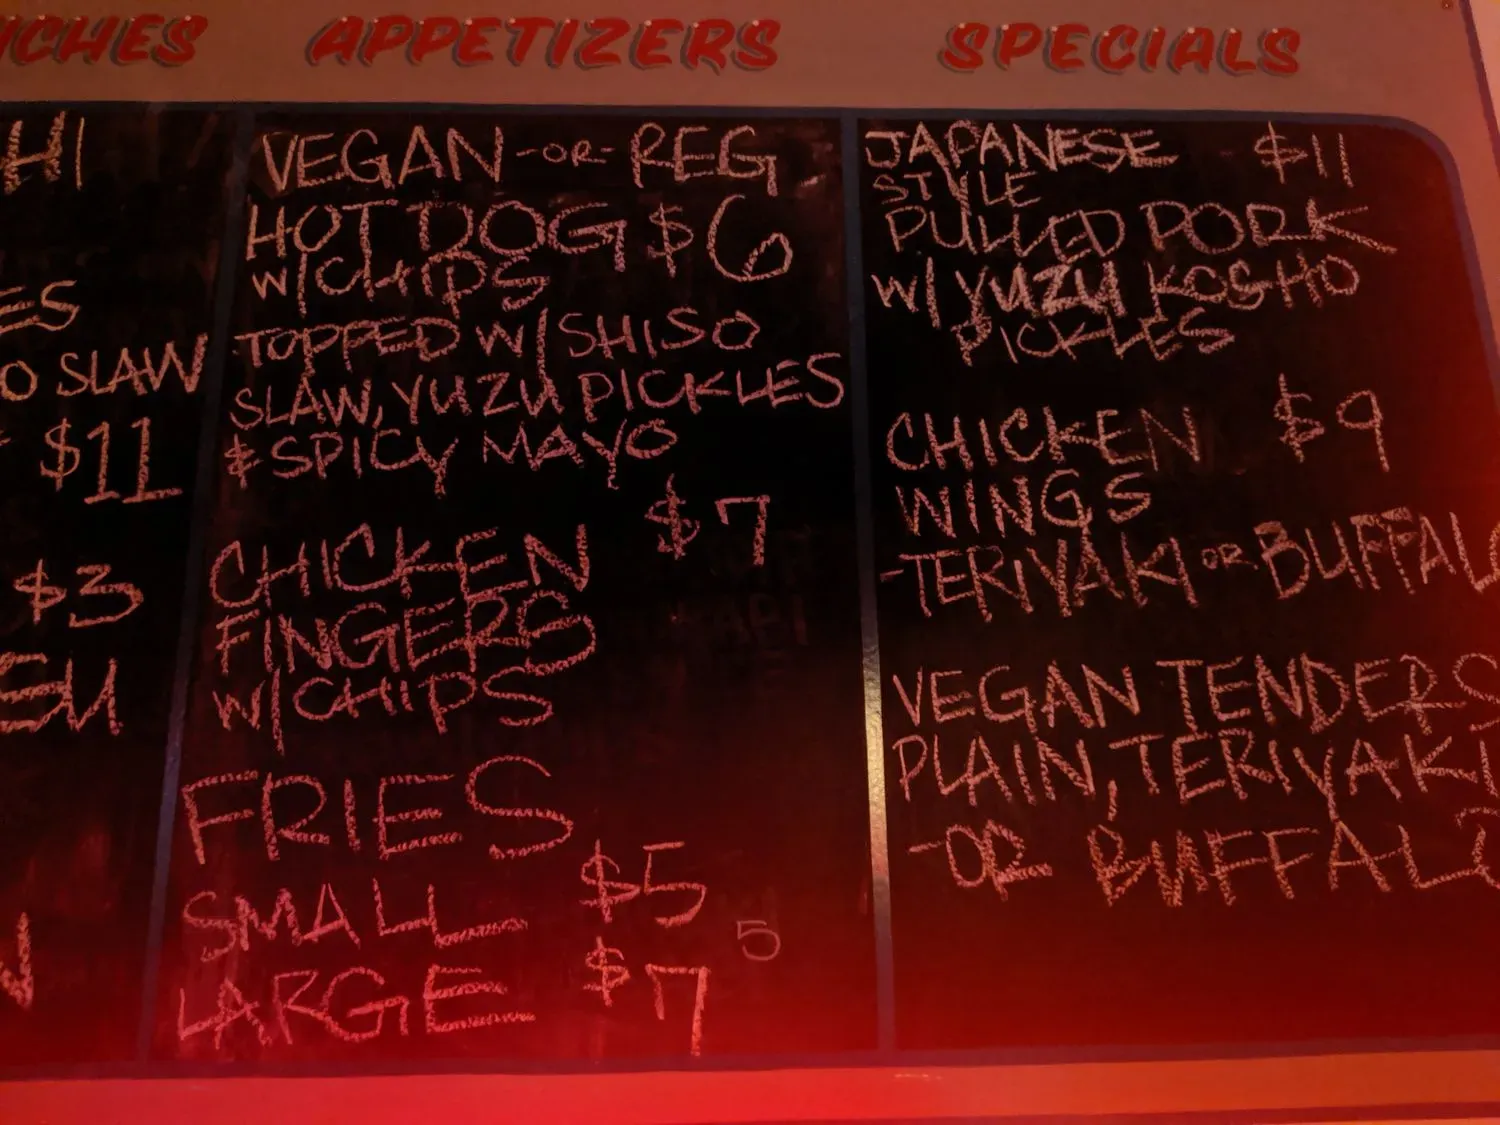 APPETIZERS
VEGAN -OR- REG
HOT DOG $6
W/CHIPS
TOPPED W/ SHISO
SLAW, YUZU PICKLES
& SPICY MAYO
CHICKEN $7
FINGERS
W/CHIPS
FRIES
SMALL $5
5
LARGE $7
SPECIALS
JAPANESE $11
STYLE
PULLED PORK
W/ YUZU KOSHO
PICKLES
CHICKEN $9
WINGS
-TERIYAKI OR BUFFALO
VEGAN TENDERS
PLAIN, TERIYAKI
-OR BUFFALO
SLAW
$11
$3